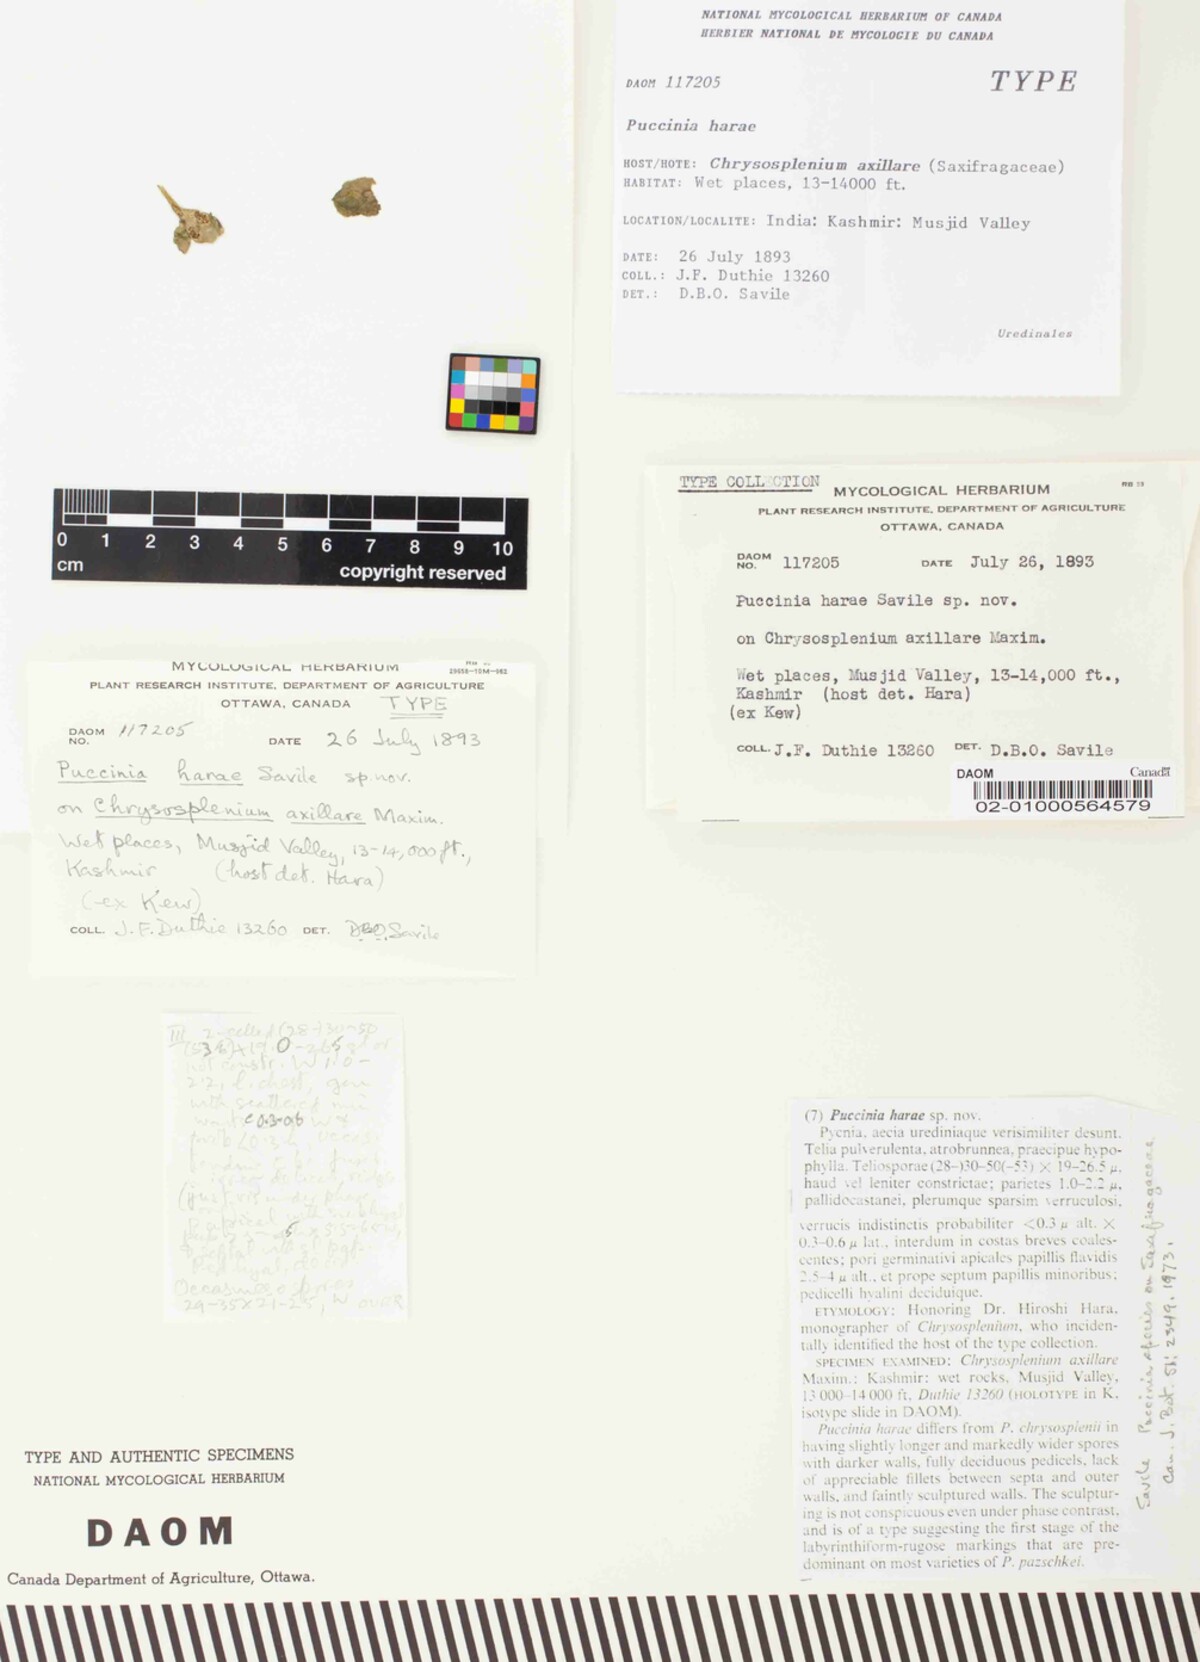 NATIONAL MYCOLOGICAL HERBARIUM OF CANADA
HERBIER NATIONAL DE MYCOLOGIE DU CANADA
DAOM 117205 TYPE
Puccinia harae
HOST/HOTE: Chrysosplenium axillare (Saxifragaceae)
HABITAT: Wet places, 13-14000 ft.
LOCATION/LOCALITE: India: Kashmir: Musjid Valley
DATE: 26 July 1893
COLL.: J.F. Duthie 13260
DET.: D.B.O. Savile
Uredinales
0 1 2 3 4 5 6 7 8 9 10
cm
copyright reserved
TYPE COLLECTION
MYCOLOGICAL HERBARIUM
PLANT RESEARCH INSTITUTE, DEPARTMENT OF AGRICULTURE
OTTAWA, CANADA
DAOM NO. 117205 DATE July 26, 1893
Puccinia harae Savile sp. nov.
on Chrysosplenium axillare Maxim.
Wet places, Musjid Valley, 13-14,000 ft.,
Kashmir (host det. Hara)
(ex Kew)
COLL. J.F. Duthie 13260 DET. D.B.O. Savile
DAOM Canada
02-01000564579
MYCOLOGICAL HERBARIUM
PLANT RESEARCH INSTITUTE, DEPARTMENT OF AGRICULTURE
OTTAWA, CANADA TYPE
DAOM NO. 117205 DATE 26 July 1893
Puccinia harae Savile sp. nov.
on Chrysosplenium axillare Maxim.
Wet places, Musjid Valley, 13-14,000 ft.,
Kashmir (host det. Hara)
(ex Kew)
COLL. J.F. Duthie 13260 DET. DBO Savile
III 2-celled (28-)30-50
not constr. W 1.0-
2.2,
with scattered
Occasional
29-35x21-25, W OVER
(7) Puccinia harae sp. nov.
Pycnia, aecia urediniaque verisimiliter desunt.
Telia pulverulenta, atrobrunnea, praecipue hypo-
phylla. Teliosporae (28-)30-50(-53) × 19-26.5 μ,
haud vel leniter constrictae; parietes 1.0-2.2 μ,
pallidocastanei, plerumque sparsim verruculosi,
verrucis indistinctis probabiliter <0.3 μ alt. ×
0.3-0.6 μ lat., interdum in costas breves coales-
centes; pori germinativi apicales papillis flavidis
2.5-4 μ alt., et prope septum papillis minoribus;
pedicelli hyalini deciduique.
ETYMOLOGY: Honoring Dr. Hiroshi Hara,
monographer of Chrysosplenium, who inciden-
tally identified the host of the type collection.
SPECIMEN EXAMINED: Chrysosplenium axillare
Maxim.: Kashmir: wet rocks, Musjid Valley,
13 000-14 000 ft, Duthie 13260 (HOLOTYPE in K,
isotype slide in DAOM).
Puccinia harae differs from P. chrysosplenii in
having slightly longer and markedly wider spores
with darker walls, fully deciduous pedicels, lack
of appreciable fillets between septa and outer
walls, and faintly sculptured walls. The sculptur-
ing is not conspicuous even under phase contrast,
and is of a type suggesting the first stage of the
labyrinthiform-rugose markings that are pre-
dominant on most varieties of P. pazschkei.
Savile Puccinia species on Saxifragaceae.
Can. J. Bot. 51: 2349. 1973.
TYPE AND AUTHENTIC SPECIMENS
NATIONAL MYCOLOGICAL HERBARIUM
DAOM
Canada Department of Agriculture, Ottawa.